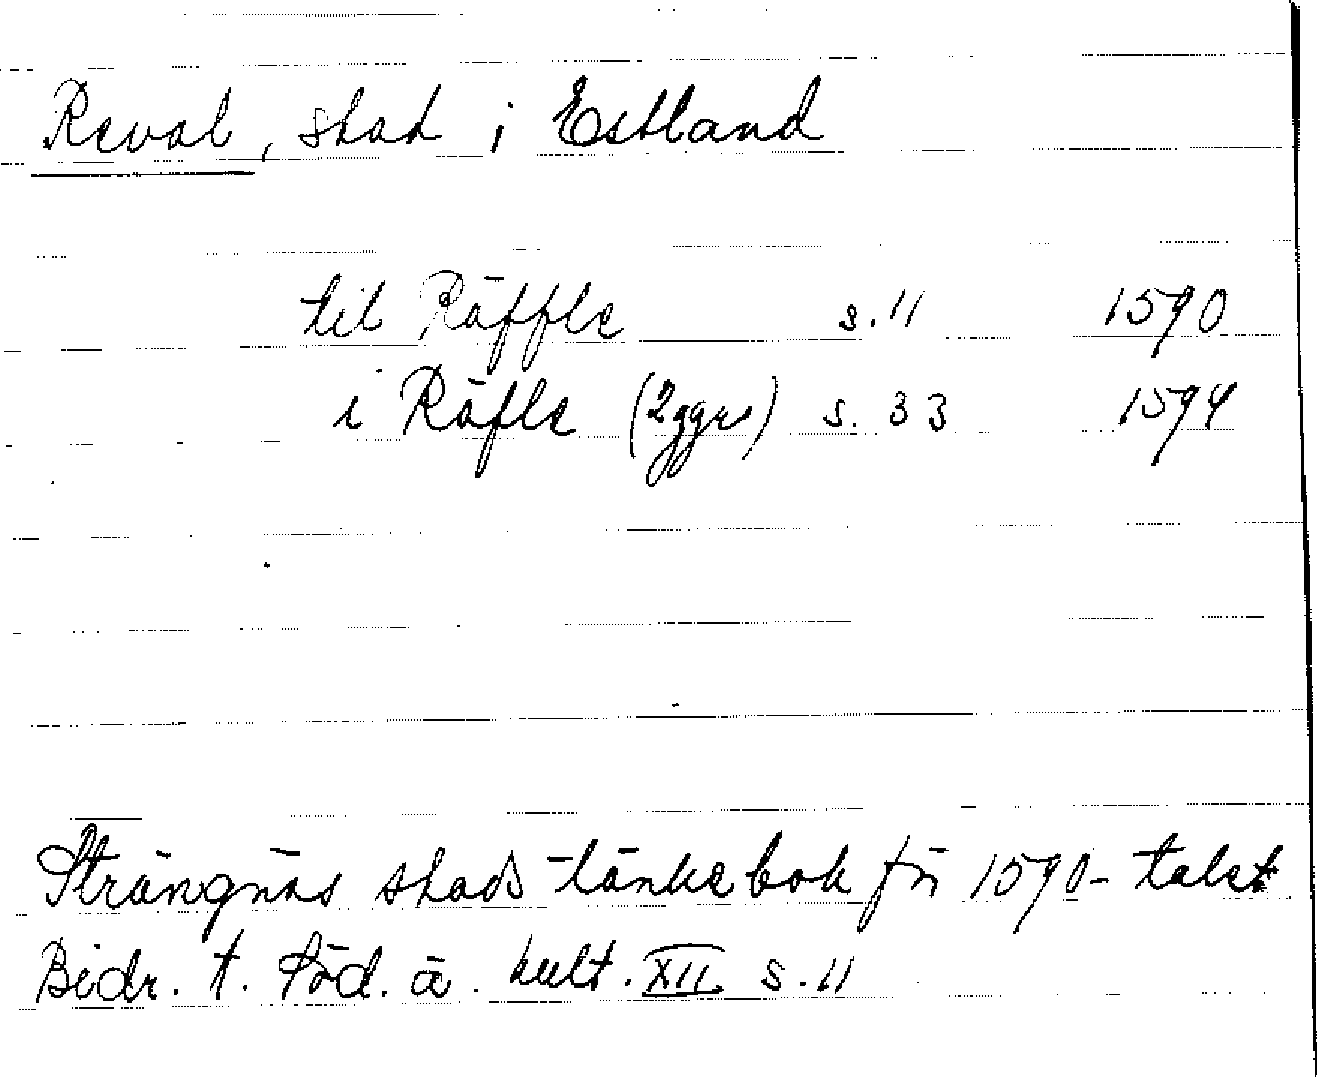 Reval, stad i Estland
til Räffle s. 11 1590
i Räfle (2ggr) s. 33 1594
Strängnäs stads tänkebok fr 1590-talet
Bidr. t. söd. ä. kult. XII s. 11